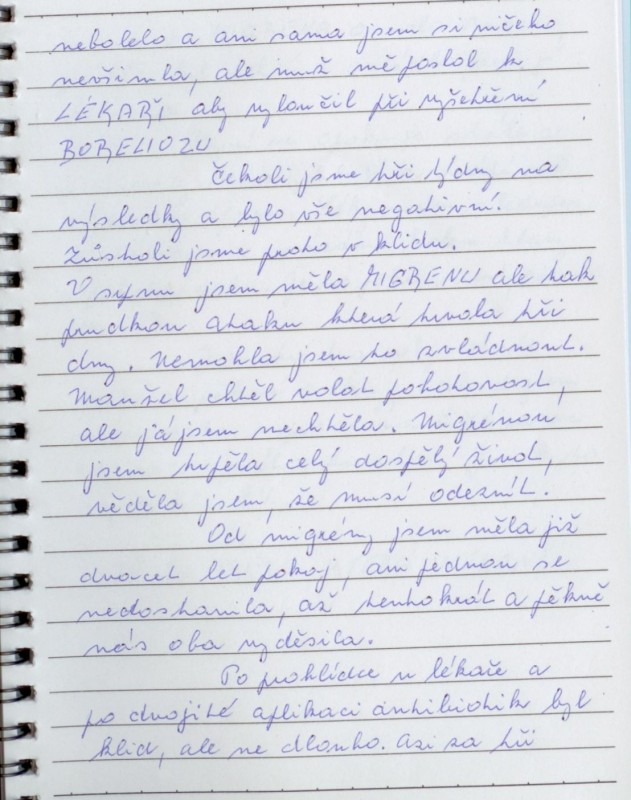 nebolelo a ani sama jsem si ničeho
nevšimla, ale muž mě poslal k
LÉKAŘI aby vyloučil při vyšetření
BORELIOZU
Čekali jsme tři týdny na
výsledky a bylo vše negativní.
Zůstali jsme proto v klidu.
V srpnu jsem měla MIGRENU ale tak
prudkou ataku která trvala tři
dny. Nemohla jsem to zvládnout.
Manžel chtěl volat pohotovost,
ale já jsem nechtěla. Migrénou
jsem trpěla celý dospělý život,
věděla jsem, že musí odeznít.
Od migrény jsem měla již
dvacet let pokoj, ani jednou se
nedostavila, až tentokrát a pěkně
nás oba vyděsila.
Po prohlídce u lékaře a
po dvojité aplikaci antibiotik byl
klid, ale ne dlouho. Asi za tři